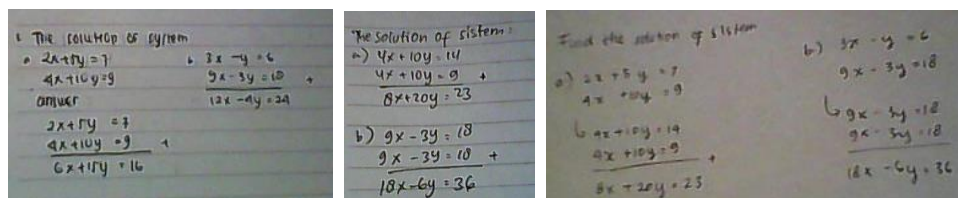 The solution of system
a 2x+5y = 7
4x+10y=9
answer
2x+5y = 7
4x+10y = 9 +
6x+15y = 16
b. 3x -y = 6
9x-3y = 18 +
12x-4y = 24
The solution of sistem:
a) 4x + 10y = 14
4x + 10y = 9 +
8x+20y = 23
b) 9x - 3y = 18
9x - 3y = 18 +
18x-6y = 36
Find the solution of sistem
a) 2x + 5y = 7
4x +10y = 9
4x +10y = 14
4x +10y = 9 +
8x + 20y = 23
b) 3x - y = 6
9x - 3y = 18
9x - 3y = 18
9x - 3y = 18 +
18x - 6y = 36